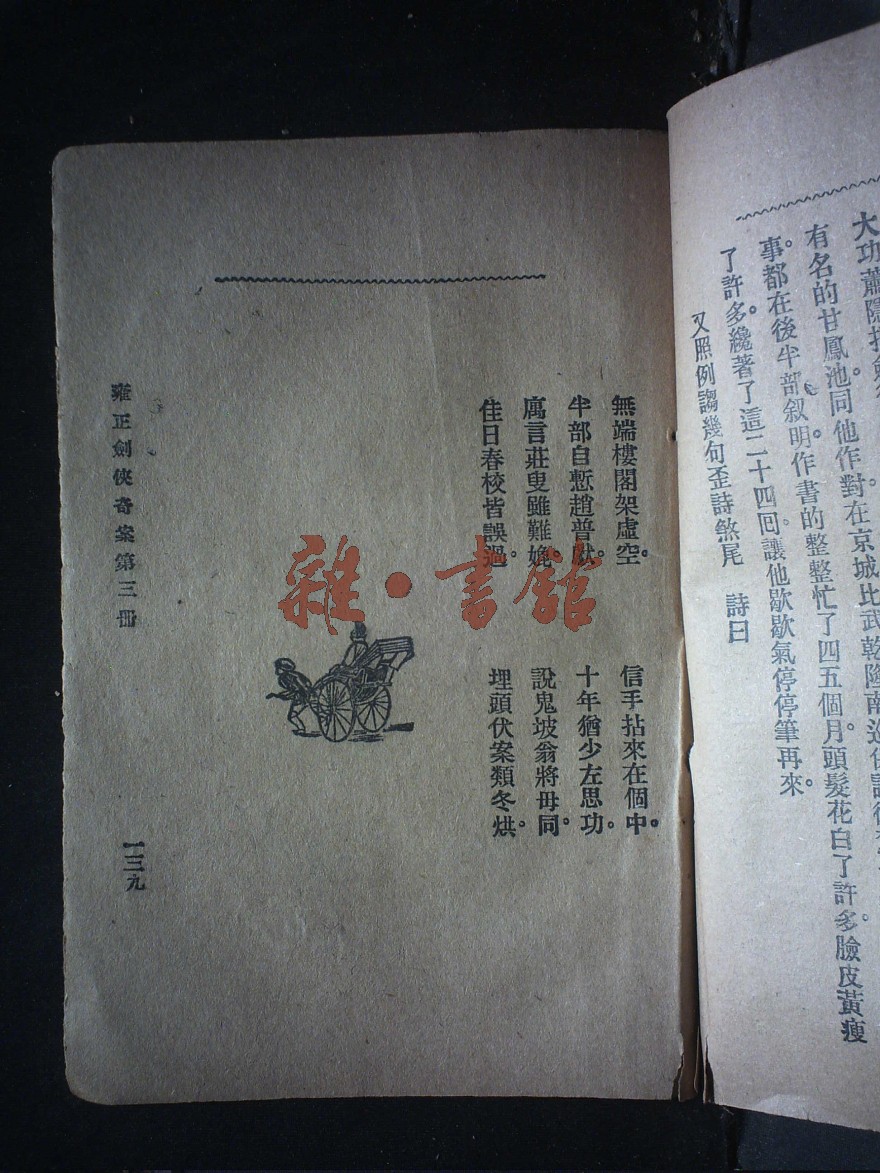 大功蕭隱
有名的甘鳳池。同他作對在京城比武乾隆南巡
事。都在後半部叙明。作書的整整忙了四五個月。頭髮花白了許多。臉皮黃瘦
了許多。纔著了這二十四回。讓他歇歇氣停停筆再來。
又照例謅幾句歪詩煞尾　詩曰
無端樓閣架虛空。　信手拈來在個中。
半部自慙趙普。　十年猶少左思功。
寓言莊叟雖難。　說鬼坡翁將毋同。
佳日春校皆誤過。　埋頭伏案類冬烘。
雍正劍俠奇案第三冊
一三九
雜·書館